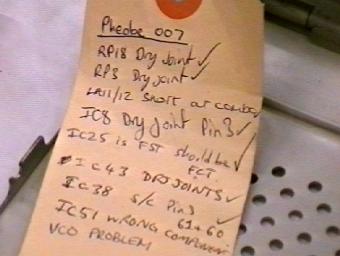 Pheobe 007
RP18 Dry Joint ✓
RP3 Dry joint ✓
11/12 SHORT
IC8 Dry Joint Pin 3 ✓
IC25 is FST should be ✓
FCT
IC43 DRY JOINTS ✓
IC38 S/C Pin 3 ✓
61+60
IC51 WRONG COMPONENT
VCO PROBLEM